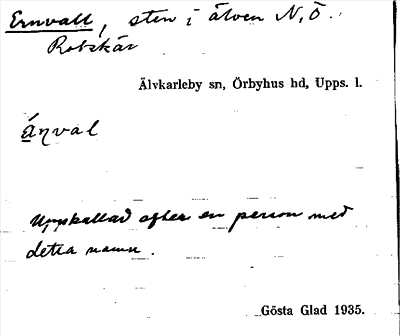 Ernvall, sten i älven N.Ö.
Rotskär
Älvkarleby sn, Örbyhus hd, Upps. l.
áŋval
Uppkallad efter en person med
detta namn.
Gösta Glad 1935.